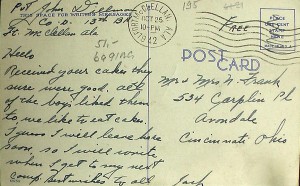 Pvt John
THIS SPACE FOR WRITING MESSAGES
Co D. 15th Bn
Ft. McClellan ala
Hello
Received your cakes they
sure were good. all
of the boys liked them
to, me like to eat cake.
I guess I will leave here
soon, so I will write
when I get to my next
camp. best wishes to all
Jack
McCLELLAN, ALA.
OCT 25
10-PM
1942
Free
POST CARD
Mr & Mrs N. Frank
534
Avondale
Cincinnati Ohio